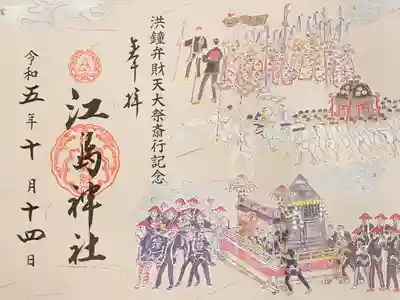 洪鐘弁財天大祭斎行記念
奉拝
江島神社
令和五年十月十四日